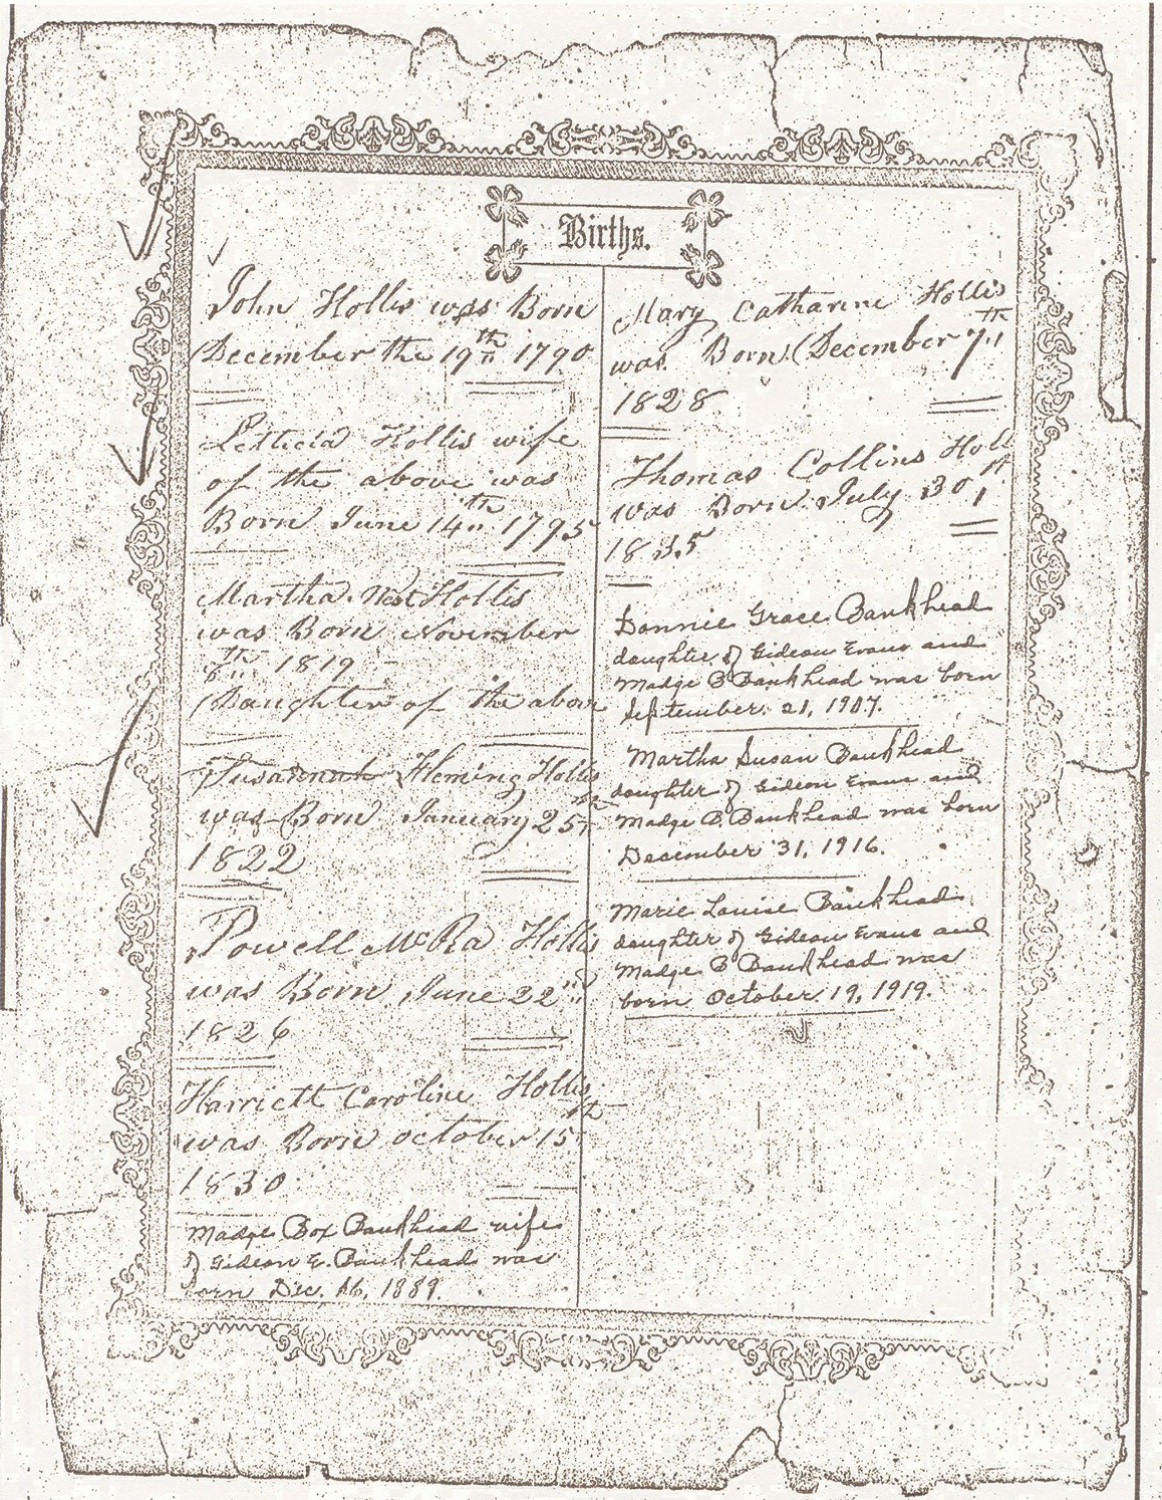 Births.
John Hollis was Born
December the 19th 1790
Letticia Hollis wife
of the above was
Born June 14th 1795
Martha West Hollis
was Born November
8th 1819
Daughter of the above
Susannah Fleming Hollis
was Born January 25th
1822
Powell McRa Hollis
was Born June 22nd
1826
Harriett Caroline Hollis
was Born October 15th
1830
Madge Box Bankhead wife
of Gideon E. Bankhead was
born Dec. 16, 1889.
Mary Catharine Hollis
was Born December 7th
1828
Thomas Collins Holl
was Born July 30
1835
Donnie Grace Bankhead
daughter of Gideon Evans and
Madge B Bankhead was born
September 21, 1907.
Martha Susan Bankhead
daughter of Gideon Evans and
Madge B. Bankhead was born
December 31, 1916.
Marie Louise Bankhead
daughter of Gideon Evans and
Madge B Bankhead was
born October 19, 1919.